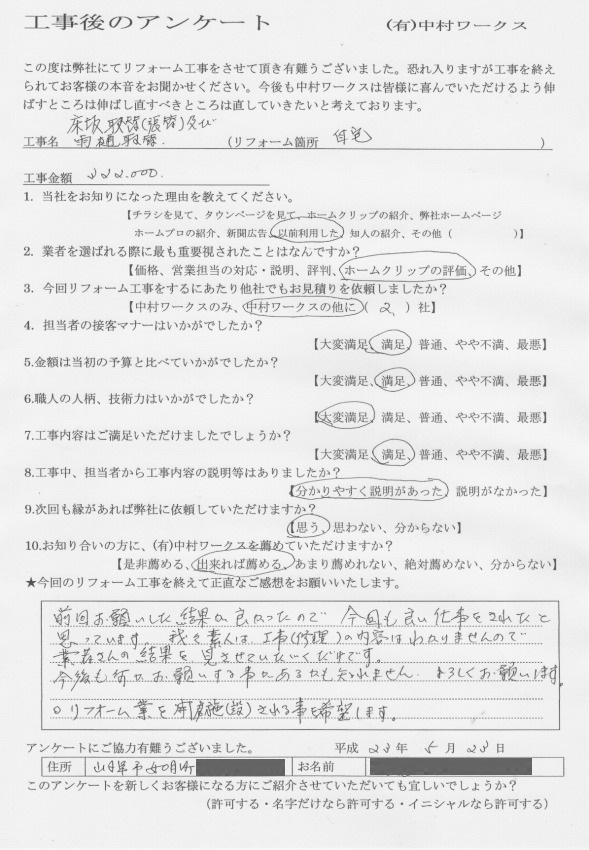 工事後のアンケート (有)中村ワークス
この度は弊社にてリフォーム工事をさせて頂き有難うございました。恐れ入りますが工事を終え
られてお客様の本音をお聞かせください。今後も中村ワークスは皆様に喜んでいただけるよう伸
ばすところは伸ばし直すべきところは直していきたいと考えております。
床板取替(張替)及び
工事名 雨樋取替. (リフォーム箇所 自宅 )
工事金額 222.000.
1. 当社をお知りになった理由を教えてください。
【チラシを見て、タウンページを見て、ホームクリップの紹介、弊社ホームページ
ホームプロの紹介、新聞広告、以前利用した、知人の紹介、その他( )】
2. 業者を選ばれる際に最も重要視されたことはなんですか?
【価格、営業担当の対応・説明、評判、ホームクリップの評価、その他】
3. 今回リフォーム工事をするにあたり他社でもお見積りを依頼しましたか?
【中村ワークスのみ、中村ワークスの他に( 2 )社】
4. 担当者の接客マナーはいかがでしたか?
【大変満足、満足、普通、やや不満、最悪】
5.金額は当初の予算と比べていかがでしたか?
【大変満足、満足、普通、やや不満、最悪】
6.職人の人柄、技術力はいかがでしたか?
【大変満足、満足、普通、やや不満、最悪】
7.工事内容はご満足いただけましたでしょうか?
【大変満足、満足、普通、やや不満、最悪】
8.工事中、担当者から工事内容の説明等はありましたか?
【分かりやすく説明があった、説明がなかった】
9.次回も縁があれば弊社に依頼していただけますか?
【思う、思わない、分からない】
10.お知り合いの方に、(有)中村ワークスを薦めていただけますか?
【是非薦める、出来れば薦める、あまり薦めれない、絶対薦めない、分からない】
★今回のリフォーム工事を終えて正直なご感想をお願いいたします。
前回お願いした結果が良かったので 今回も良い仕事をされたと
思っています。我々素人は工事(修理)の内容はわかりませんので
業者さんの結果を見させていただくだけです。
今後も何かお願いする事があるかも知れません. よろしくお願いします。
○リフォーム業を 施(設)される事を希望します。
アンケートにご協力有難うございました。 平成 23 年 5 月 23 日
住所 お名前
このアンケートを新しくお客様になる方にご紹介させていただいても宜しいでしょうか?
(許可する・名字だけなら許可する・イニシャルなら許可する)